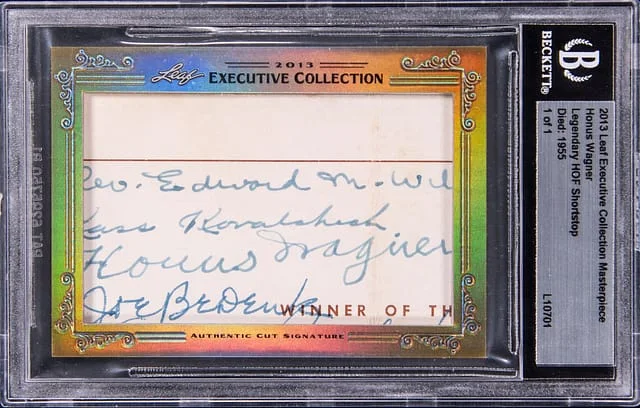 2013
Leaf EXECUTIVE COLLECTION
Rev. Edward M. Wil
Kass Kovalshish
Honus Wagner
Joe Bedenk
WINNER OF TH
AUTHENTIC CUT SIGNATURE
B
BECKETT®
2013 Leaf Executive Collection Masterpiece
Honus Wagner
Legendary HOF Shortstop
Died: 1955
1 of 1
L10701